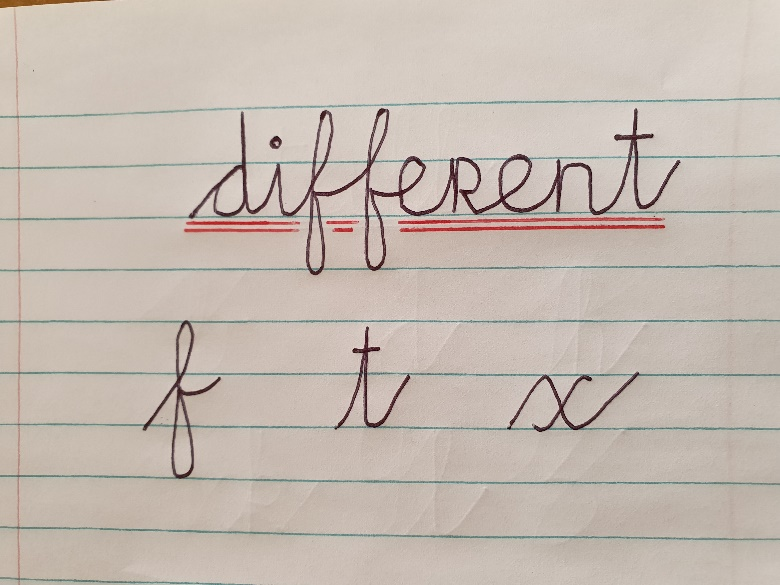 different
f t x